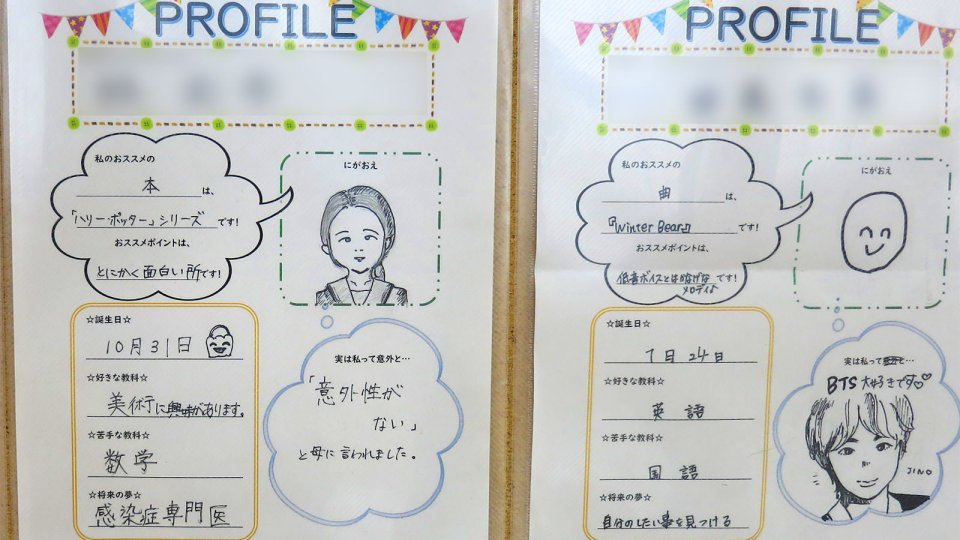 PROFILE
私のおススメの
本は、
「ハリー・ポッター」シリーズです!
おススメポイントは、
とにかく面白い所です!
にがおえ
☆誕生日☆
10月31日
☆好きな教科☆
美術に興味があります。
☆苦手な教科☆
数学
☆将来の夢☆
感染症専門医
実は私って意外と…
「意外性が
ない」
と母に言われました。
PROFILE
私のおススメの
曲は、
『Winter Bear』です!
おススメポイントは、
低音ボイスとはかなげな
メロディです!
にがおえ
☆誕生日☆
7月24日
☆好きな教科☆
英語
☆苦手な教科☆
国語
☆将来の夢☆
自分のしたい事を見つける
実は私って意外と…
BTS大好きです♡♡